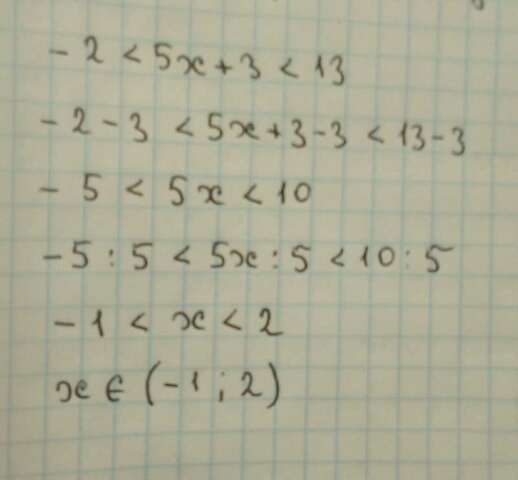 - 2 < 5x + 3 < 13
- 2 - 3 < 5x + 3 - 3 < 13 - 3
- 5 < 5x < 10
- 5 : 5 < 5x : 5 < 10 : 5
- 1 < x < 2
x ∈ (-1 ; 2)